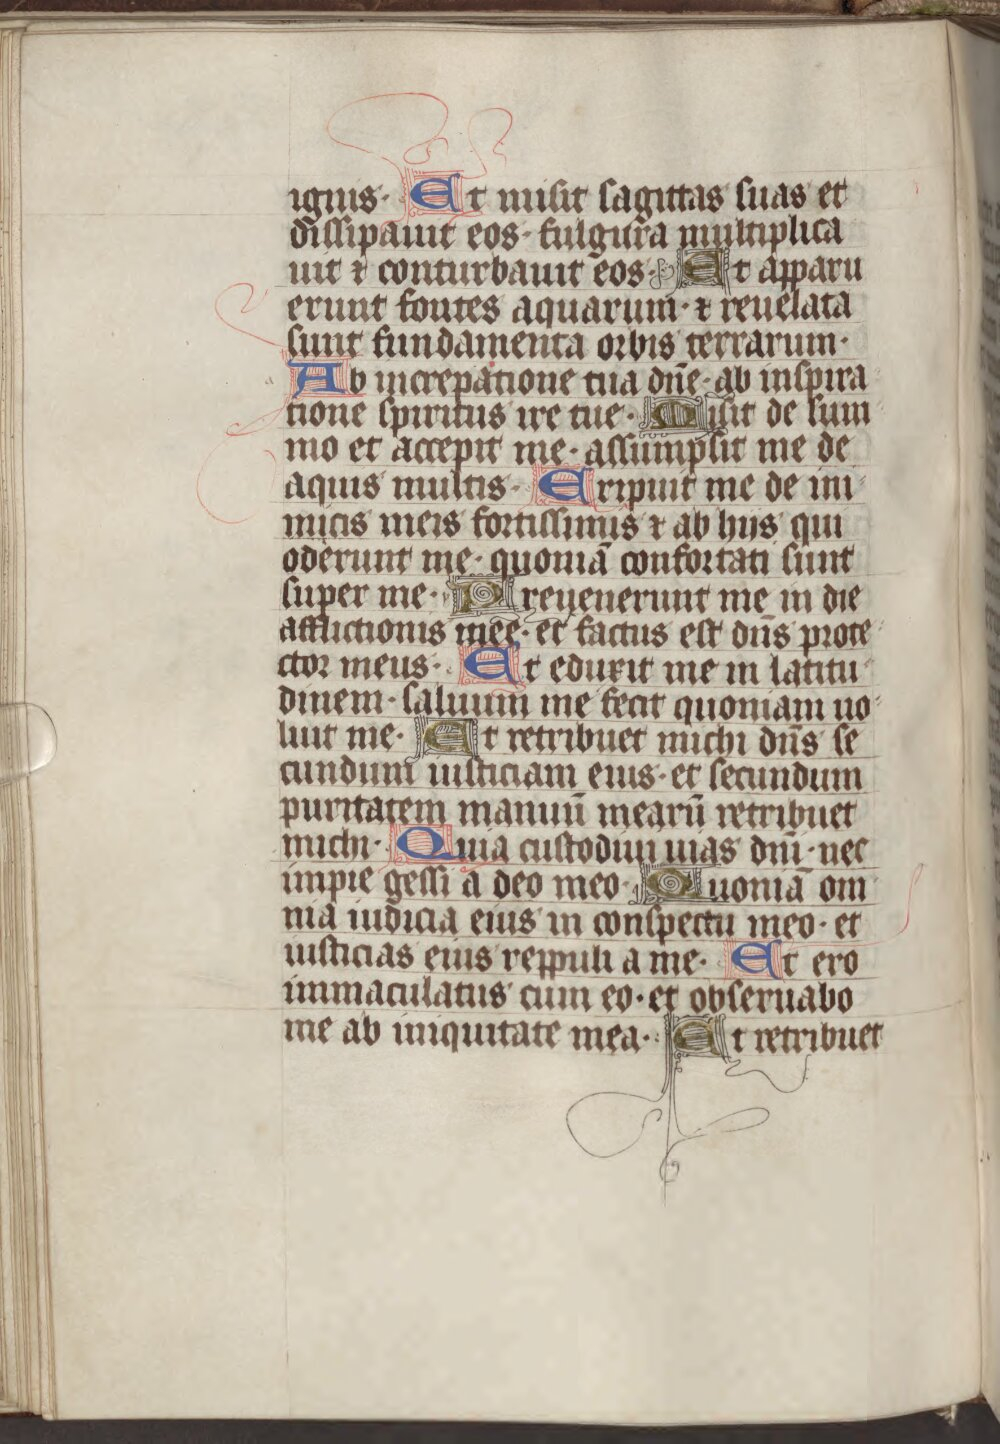 ignis· Et misit sagittas suas et
dissipauit eos· fulgura multiplica
uit ⁊ conturbauit eos· Et apparu
erunt fontes aquarum· ⁊ reuelata
sunt fundamenta orbis terrarum·
Ab increpatione tua dn̄e· ab inspira
tione spiritus ire tue· Misit de sum
mo et accepit me· assumpsit me de
aquis multis· Eripuit me de ini
micis meis fortissimis ⁊ ab hijs qui
oderunt me· quoniā confortati sunt
super me· Preuenerunt me in die
afflictionis mee· et factus est dn̄s prote
ctor meus· Et eduxit me in latitu
dinem· saluum me fecit quoniam uo
luit me· Et retribuet michi dn̄s se
cundum iusticiam eius· et secundum
puritatem manuū mearū retribuet
michi· Quia custodiui uias dn̄i· nec
impie gessi a deo meo· Quoniā om
nia iudicia eius in conspectu meo· et
iusticias eius reppuli a me· Et ero
immaculatus cum eo· et obseruabo
me ab iniquitate mea· Et retribuet